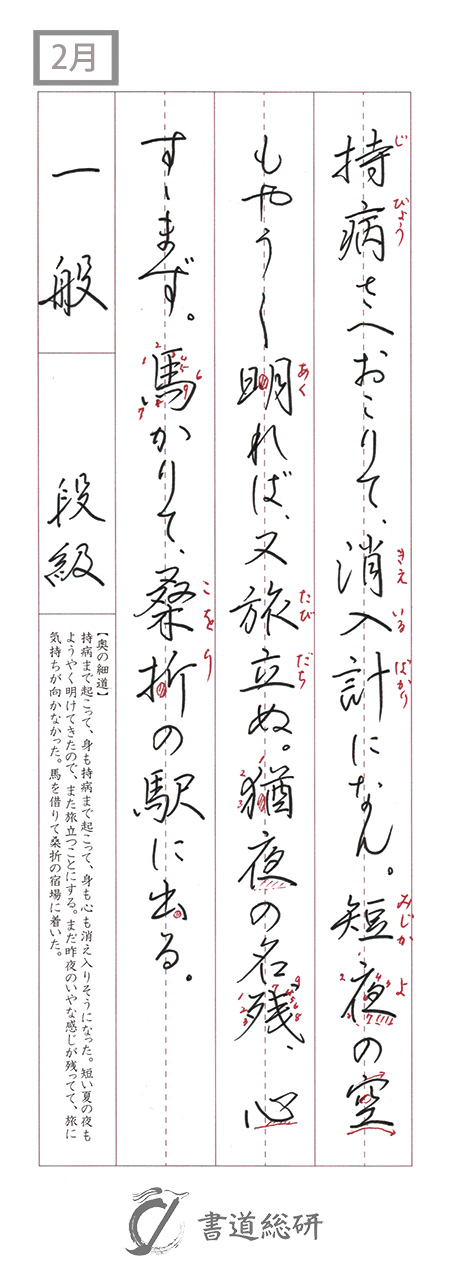 2月
持病さへおこりて、消入計になん。短夜の空
じ びょう きえ いる ばかり みじか よ
もやう〱明れば、又旅立ぬ。猶夜の名残、心
あく たび だち
すゝまず。馬かりて、桑折の駅に出る。
こをり
一般 段級
【奥の細道】
持病まで起こって、身も持病まで起こって、身も心も消え入りそうになった。短い夏の夜も
ようやく明けてきたので、また旅立つことにする。まだ昨夜のいやな感じが残ってて、旅に
気持ちが向かなかった。馬を借りて桑折の宿場に着いた。
書道総研